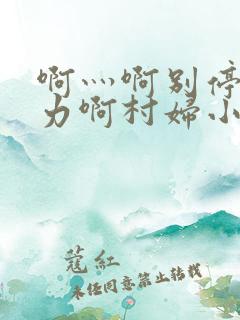 啊灬啊别停
力啊村婦小
蔻紅
未经同意禁止转载